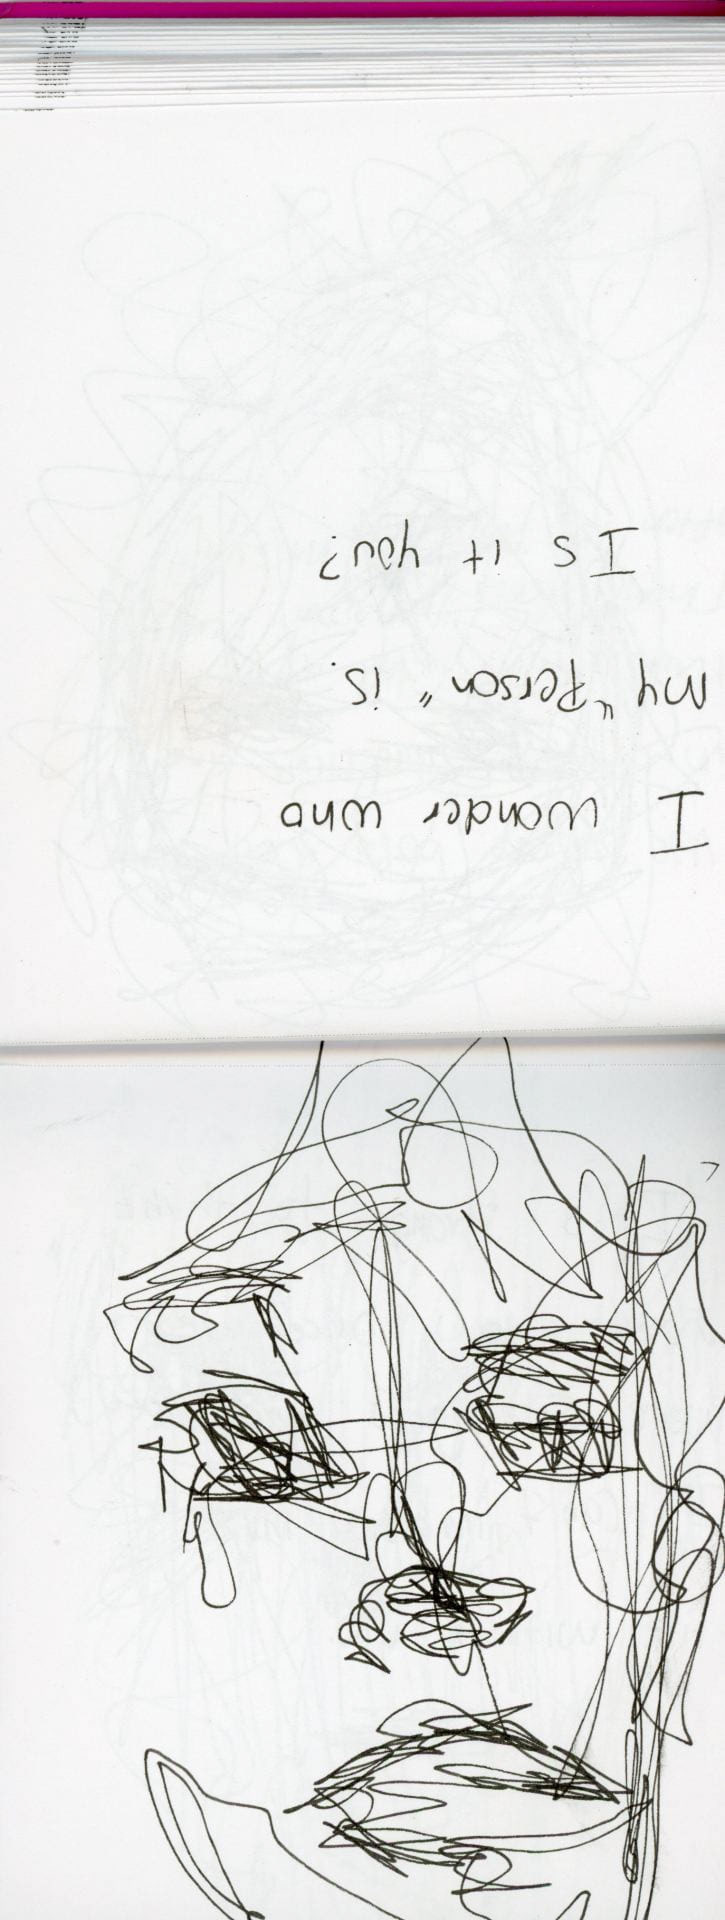 I wonder who
my "Person" is.
Is it you?